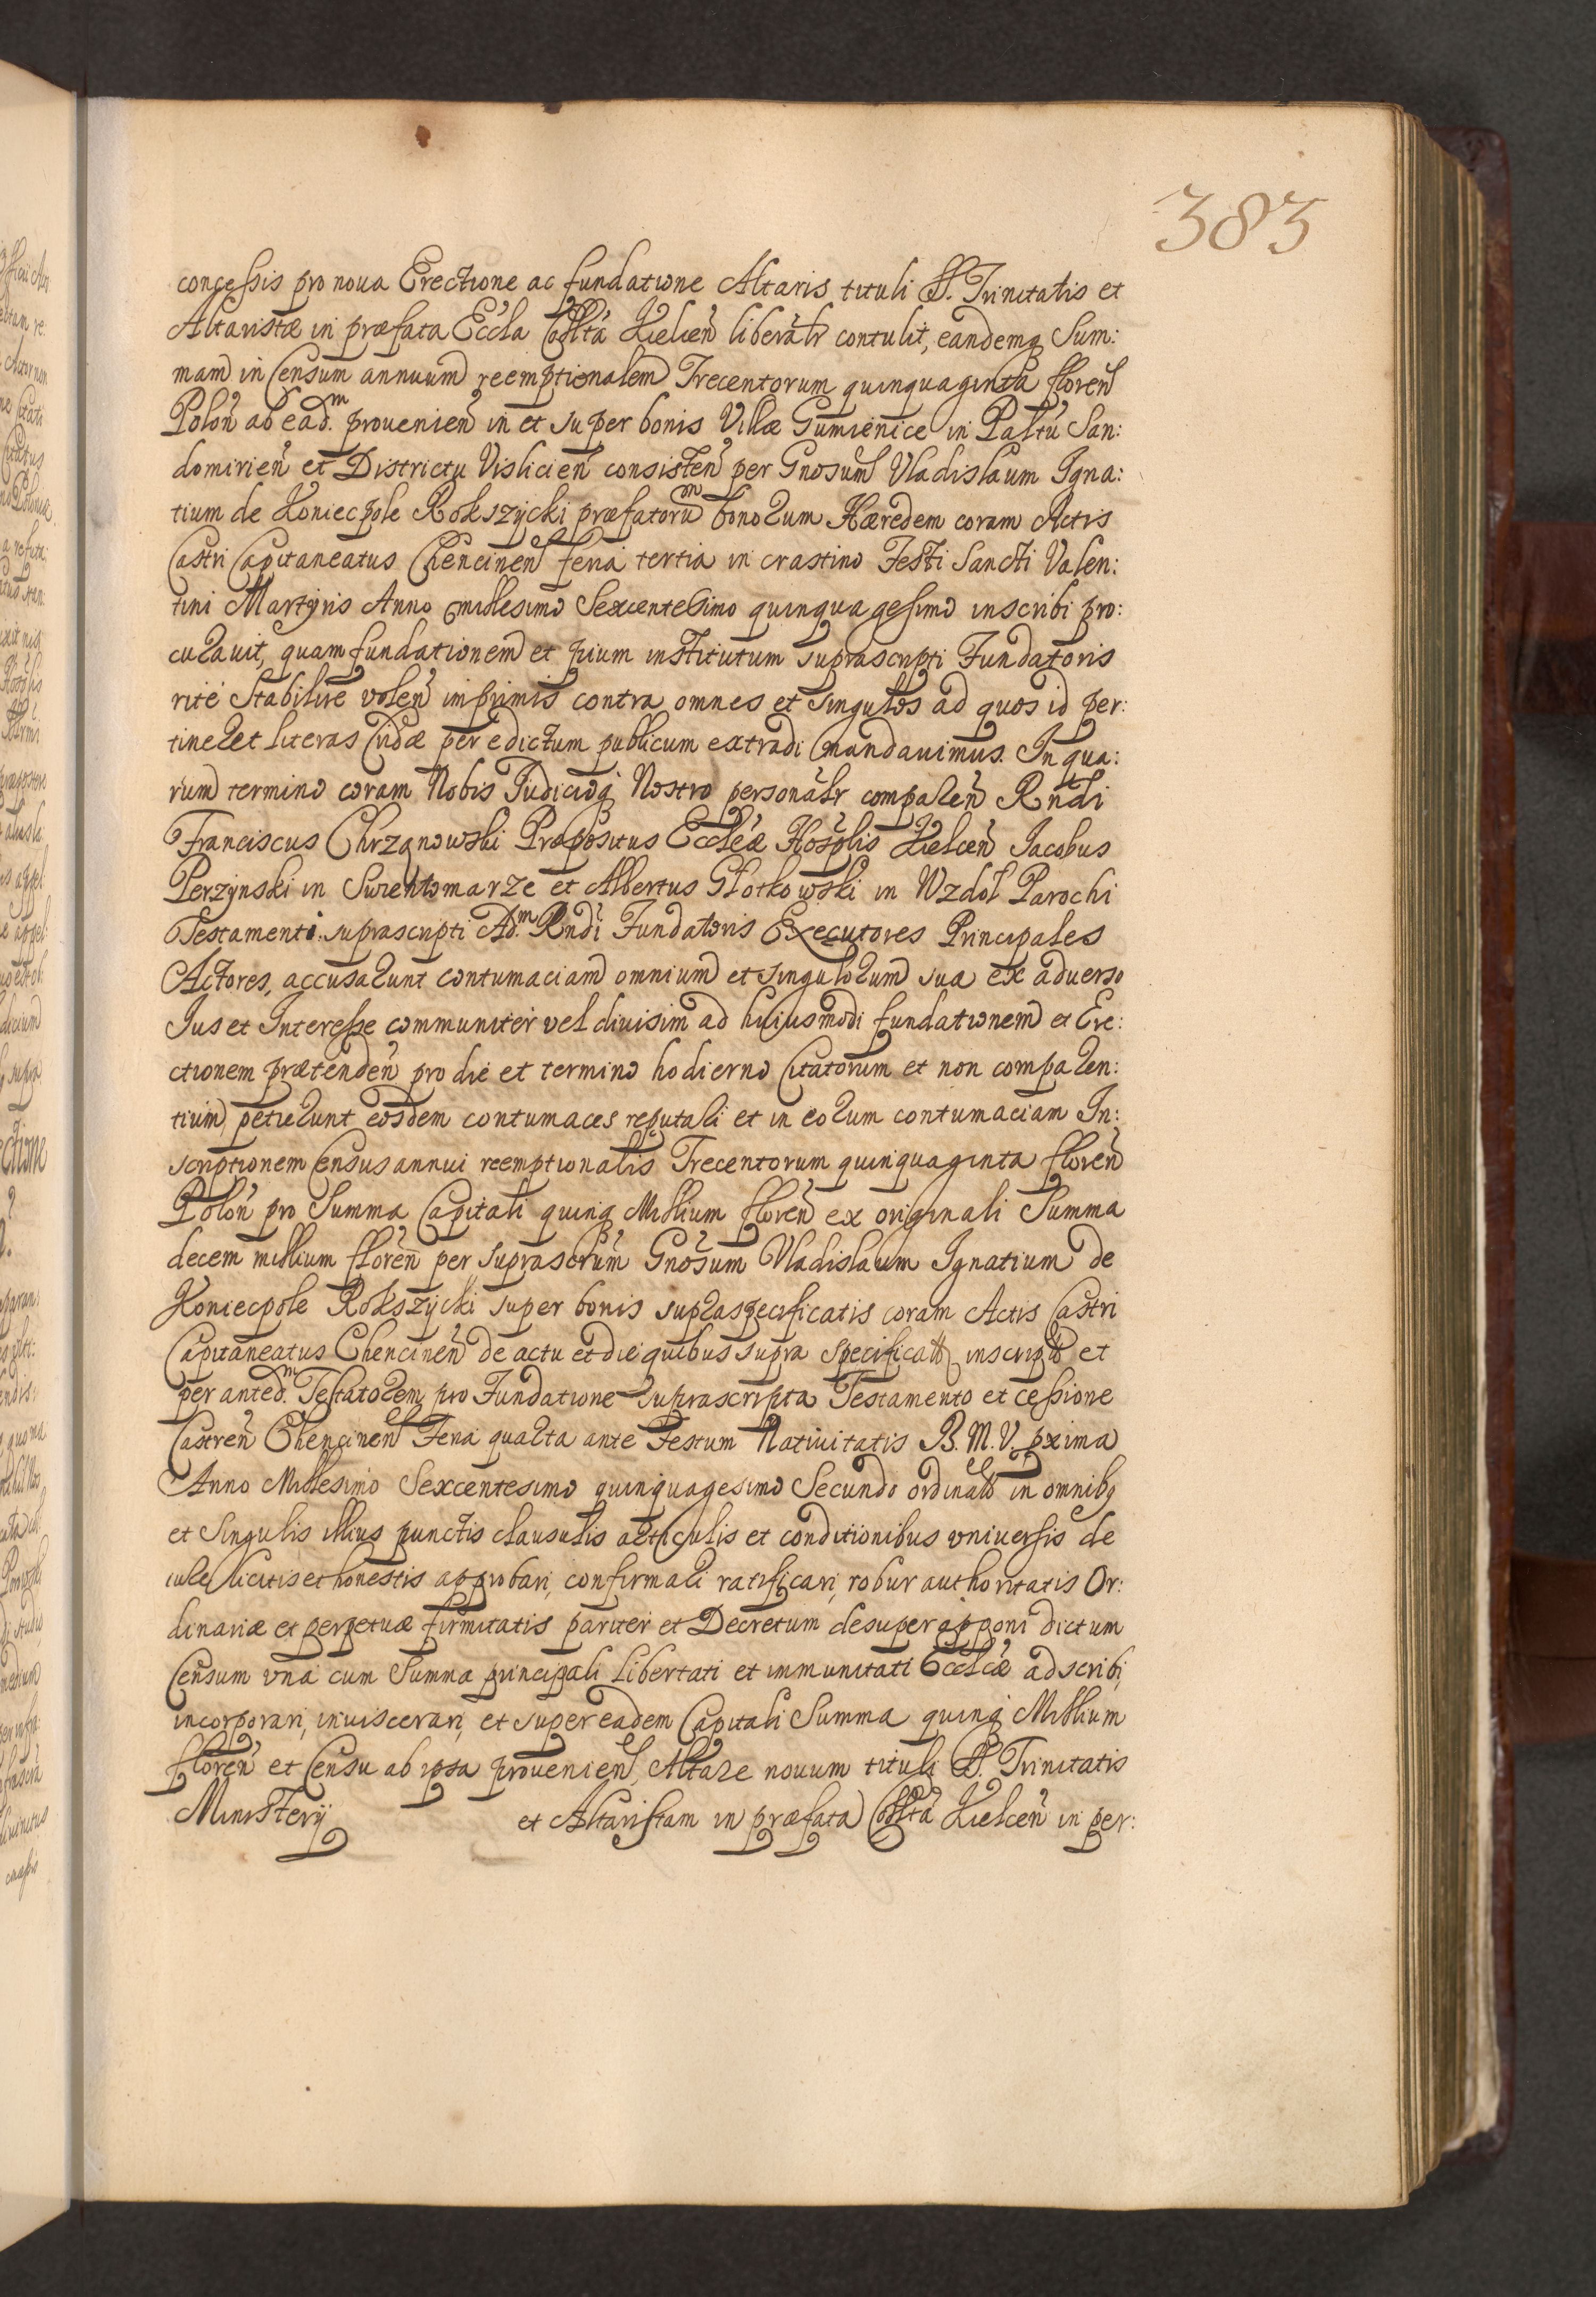 383
concessis pro noua Erectione ac fundatione Altaris tituli SS. Trinitatis et
Altaristæ in præfata Eccla Collta Kielcen̄ liberalr contulit, eandemq Sum:
mam in Censum annuum reemptionalem Trecentorum quinquaginta floren̄
Polon̄ ab ead.m prouenien̄ in et super bonis Villæ Gumienice in Paltu San:
domirien̄ et Districtu Vislicien̄ consisten̄ per Gnosum Vladislaum Igna:
tium de Koniecpole Rokszycki præfatorum bonorum Hæredem coram Actis
Castri Capitaneatus Chencinen̄ feria tertia in crastino Festi Sancti Valen:
tini Martyris Anno millesimo Sexcentesimo quinquagesimo inscribi pro:
curauit, quam fundationem et pium institutum suprascripti Fundatoris
rité Stabilire volen̄ inprimis contra omnes et singulos ad quos id per:
tineret literas Cridæ per edictum publicum extradi mandauimus. In qua:
rum termino coram Nobis Iudicioq Nostro personalr comparen̄ Rndi
Franciscus Chrząnowski Præpositus Eccleæ Hosplis Kielcen̄ Iacobus
Perzynski in Swentomarze et Albertus Głotkowski in Wzdoł Parochi
Testamenti suprascripti Ad.m Rndi Fundatoris Executores Principales
Actores, accusarunt contumaciam omnium et singulorum sua ex aduerso
Ius et Interesse communiter vel diuisim ad huiusmodi fundationem et Ere:
ctionem prætenden̄ pro die et termino hodierno Citatorum et non comparen:
tium, petierunt eosdem contumaces reputari et in eorum contumaciam In:
scriptionem Censusannui reemptionalis Trecentorum quinquaginta floren̄
Polon̄ pro Summa Capitali quinq Millium floren̄ ex originali Summa
decem millium floren̄ per suprascrum̄ Gnosum Vladislaum Ignatium de
Koniecpole Rokszycki super bonis supraspecificatis coram Actis Castri
Capitaneatus Chencinen̄ de actu et die quibus supra specificat inscript et
per anted.m Testatorem pro Fundatione suprascripta Testamento et cessione
Castren̄ Chencinen̄ Feria quarta ante Festum Natiuitatis B. M. V. pxima
Anno Millesimo Sexcentesimo quinquagesimo Secundo ordinat in omnibq
et Singulis illius punctis clausulis articulis et conditionibus vniuersis de
iure licitis et honestis approbari, confirmari ratificari, robur authoritatis Or:
dinariæ et perpetuæ firmitatis pariter et Decretum desuper apponi dictum
Censum vna cum Summa principali libertati et immunitati Ecclciæ adscribi,
incorporari, inuiscerari, et super eadem Capitali Summa quinq Millium
floren̄ et Censu ab ipsa prouenien̄, Altare nouum tituli SS. Trinitatis
Ministerij et Altaristam in præfata Collta Kielcen̄ in per: